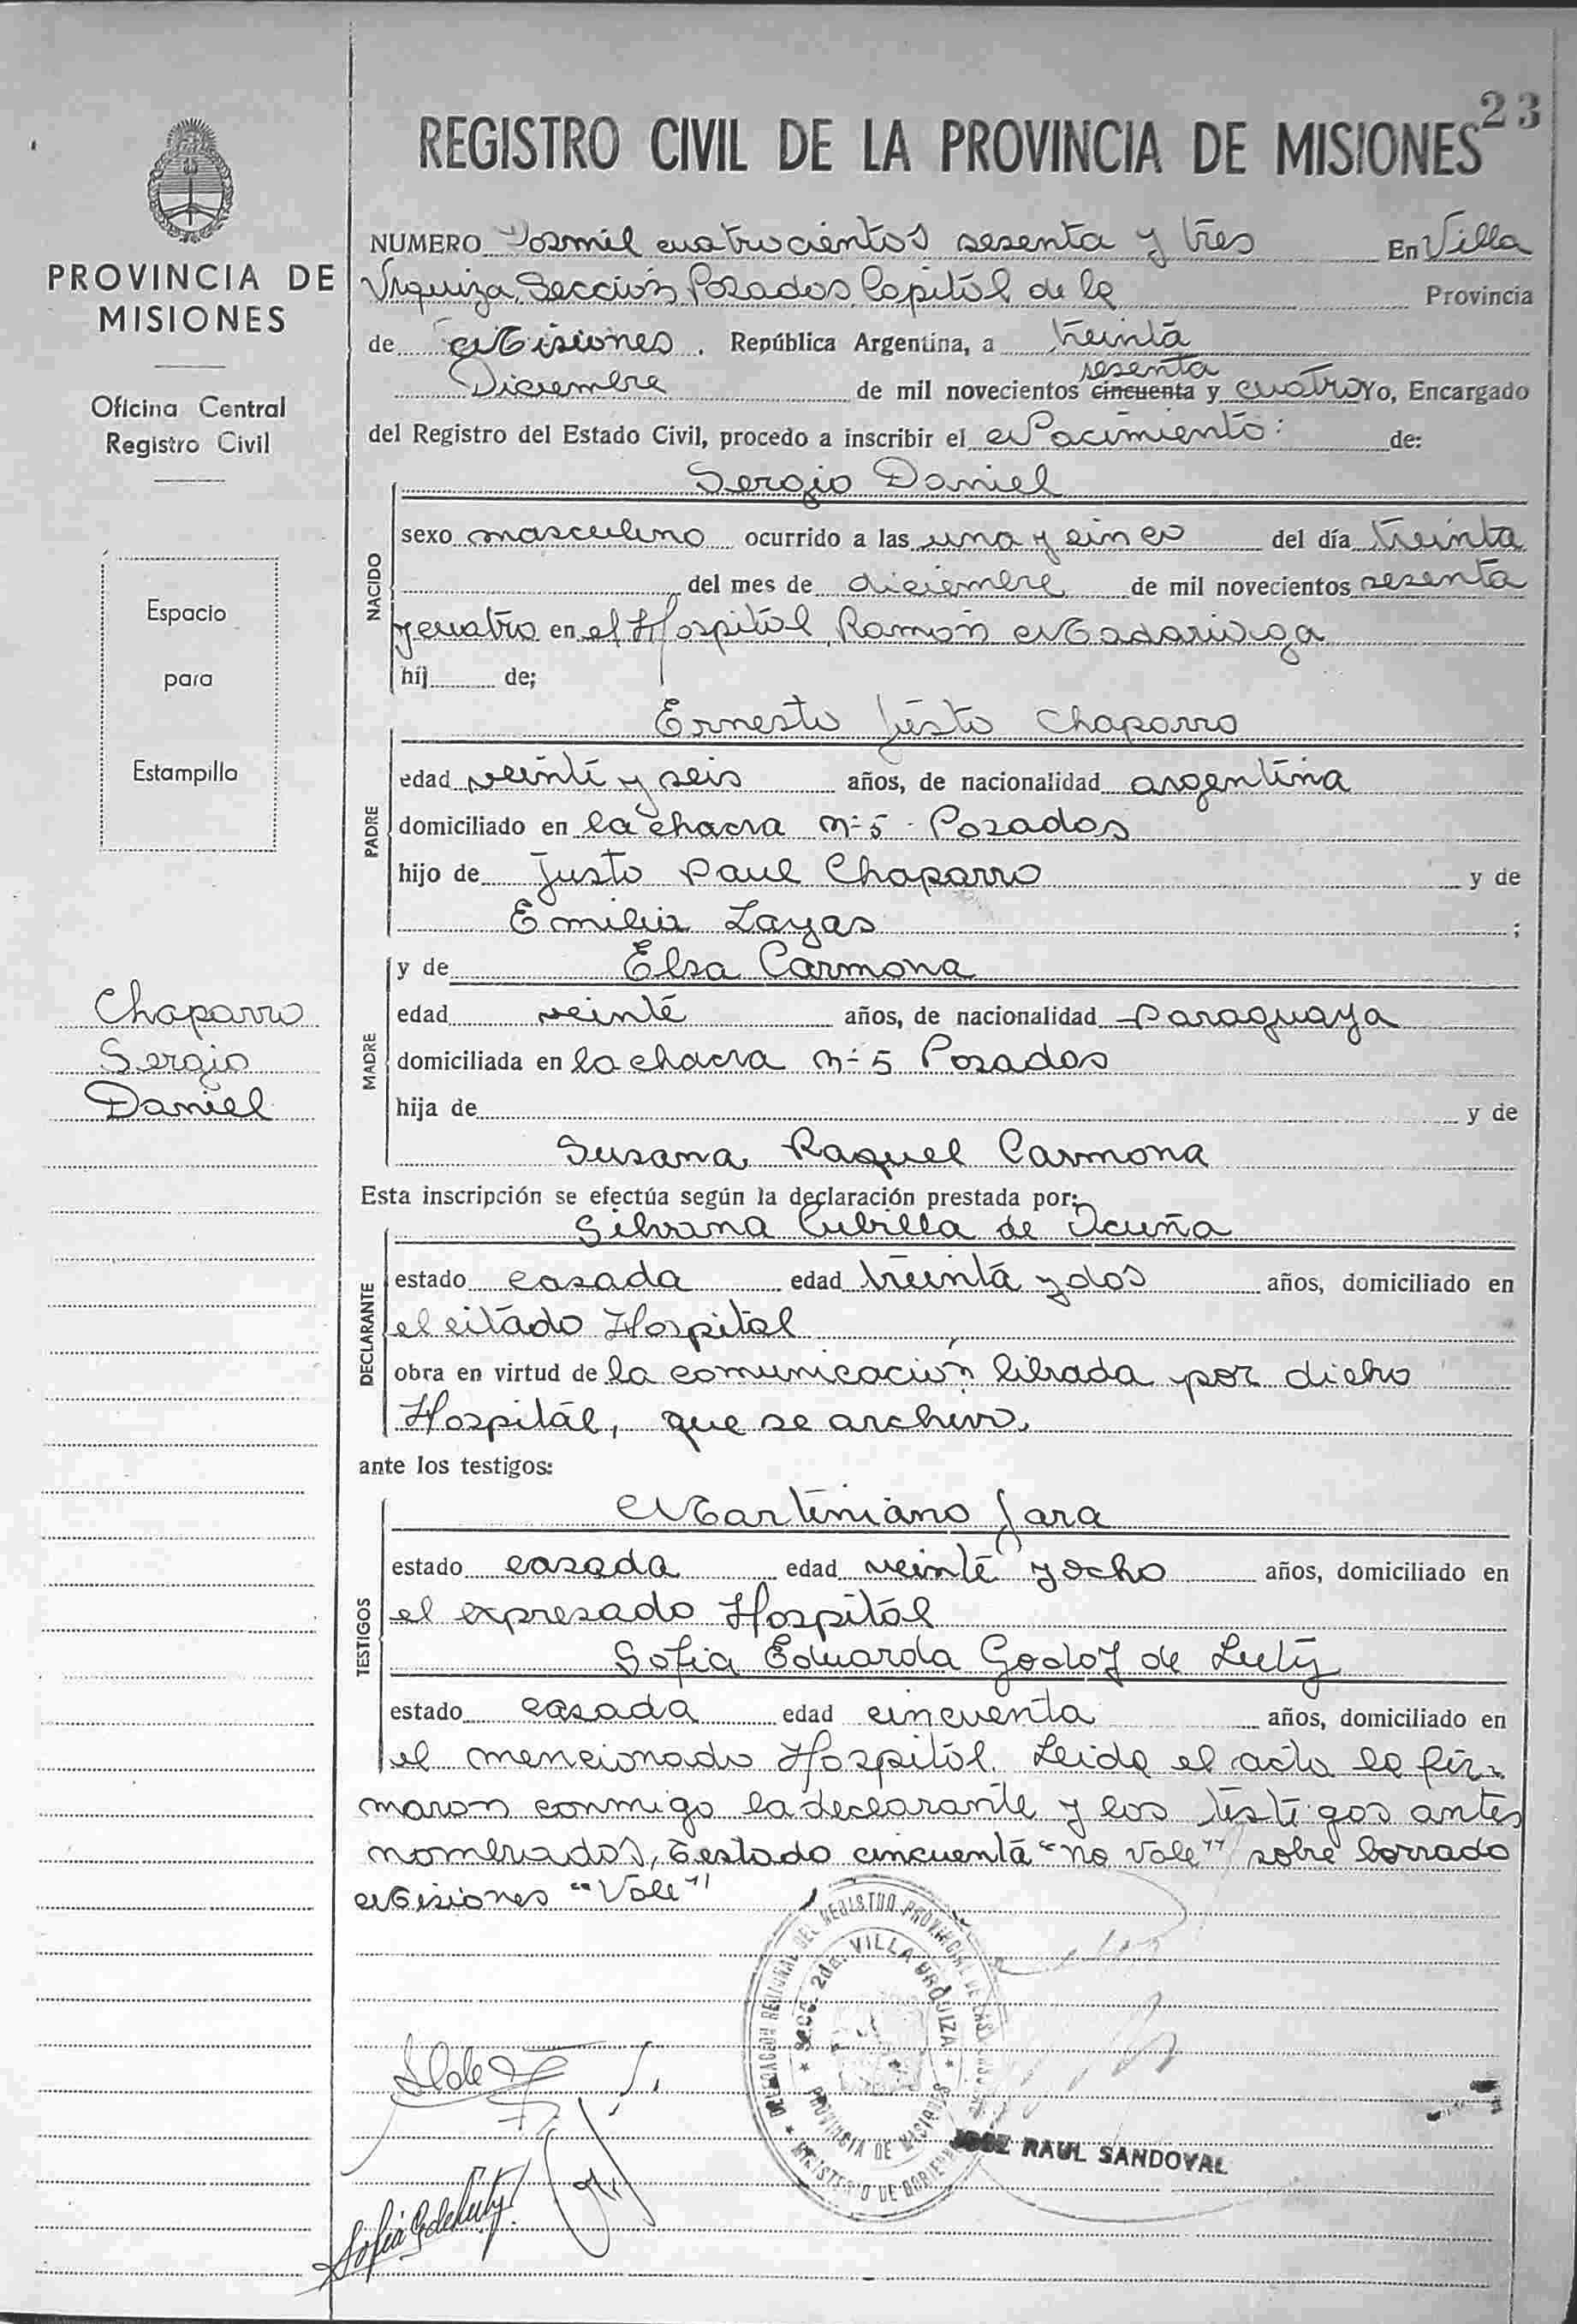 23
REGISTRO CIVIL DE LA PROVINCIA DE MISIONES
PROVINCIA DE
MISIONES
Oficina Central
Registro Civil
Espacio
para
Estampilla
Chaparro
Sergio
Daniel
NUMERO Dosmil cuatrocientos sesenta y tres En Villa
Urquiza, Sección Posadas, Capital de la Provincia
de Misiones, República Argentina, a treinta
sesenta
Diciembre de mil novecientos cincuenta y cuatro Yo, Encargado
del Registro del Estado Civil, procedo a inscribir el Nacimiento: de:
Sergio Daniel
NACIDO
sexo masculino ocurrido a las una y cinco del día treinta
del mes de diciembre de mil novecientos sesenta
y cuatro en el Hospital, Ramón Madariaga
hij de;
Ernesto Justo Chaparro
PADRE
edad veinte y seis años, de nacionalidad argentina
domiciliado en la chacra n: 5 - Posadas
hijo de Justo Paul Chaparro y de
Emilia Layas ;
MADRE
y de Elsa Carmona
edad veinte años, de nacionalidad Paraguaya
domiciliada en la chacra n: 5 Posadas
hija de y de
Susana Raquel Carmona
Esta inscripción se efectúa según la declaración prestada por:
Silvana Cubilla de Acuña
DECLARANTE
estado casada edad treinta y dos años, domiciliado en
el citado Hospital
obra en virtud de la comunicación librada por dicho
Hospital, que se archiva.
ante los testigos:
Martiniano Jara
TESTIGOS
estado casada edad veinte y ocho años, domiciliado en
el expresado Hospital
Sofia Eduarda Godoy de
estado casada edad cincuenta años, domiciliado en
el mencionado Hospital. Leida el acta la fir-
maron conmigo la declarante y los testigos antes
nombrados, Testado cincuenta "no vale" sobre borrado
Misiones "Vale"
DELEGACION REGIONAL DEL REGISTRO PROVINCIAL DE LAS
SECC. 2da. VILLA URQUIZA
PROVINCIA DE MISIONES
MINISTERIO DE GOBIERNO
JOSE RAUL SANDOVAL